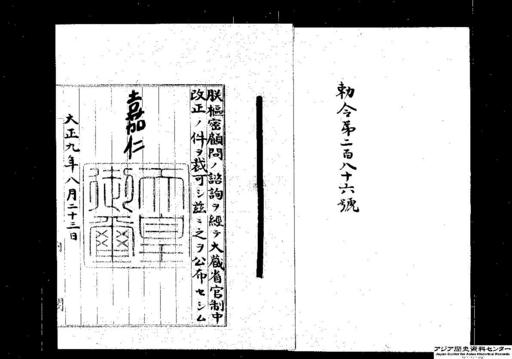 勅令第二百八十六號
朕樞密顧問ノ諮詢ヲ經テ大蔵省官制中
改正ノ件ヲ裁可シ茲ニ之ヲ公布セシム
嘉仁
天皇
御璽
大正九年八月二十三日
アジア歴史資料センター
Japan Center for Asian Historical Records